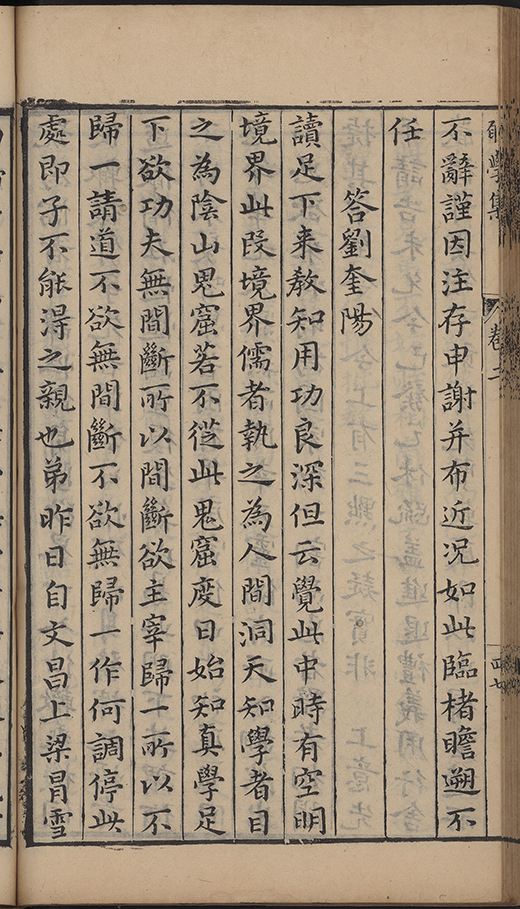 學集
卷二
四七
不辭謹因注存申謝并布近况如此臨楮瞻遡不
任
答劉奎陽
讀足下来教知用功良深但云覺此中時有空明
境界此段境界儒者執之為人間洞天知學者目
之為陰山鬼窟若不從此鬼窟度日始知真學足
下欲功夫無間斷所以間斷欲主宰歸一所以不
歸一請道不欲無間斷不欲無歸一作何調停此
處即子不能淂之親也弟昨日自文昌上梁冐雪